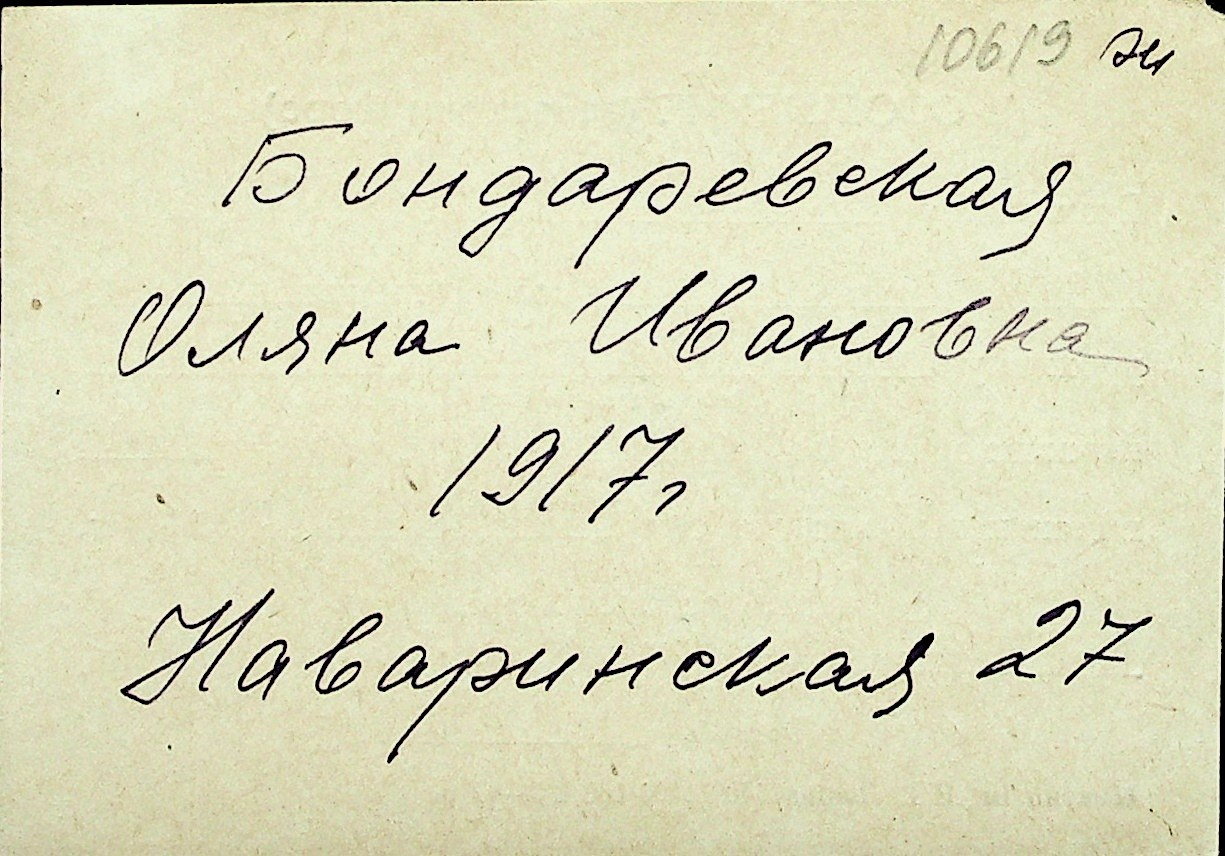 10619
Бондаревская
Оляна Ивановна
1917г
Наваринская 27